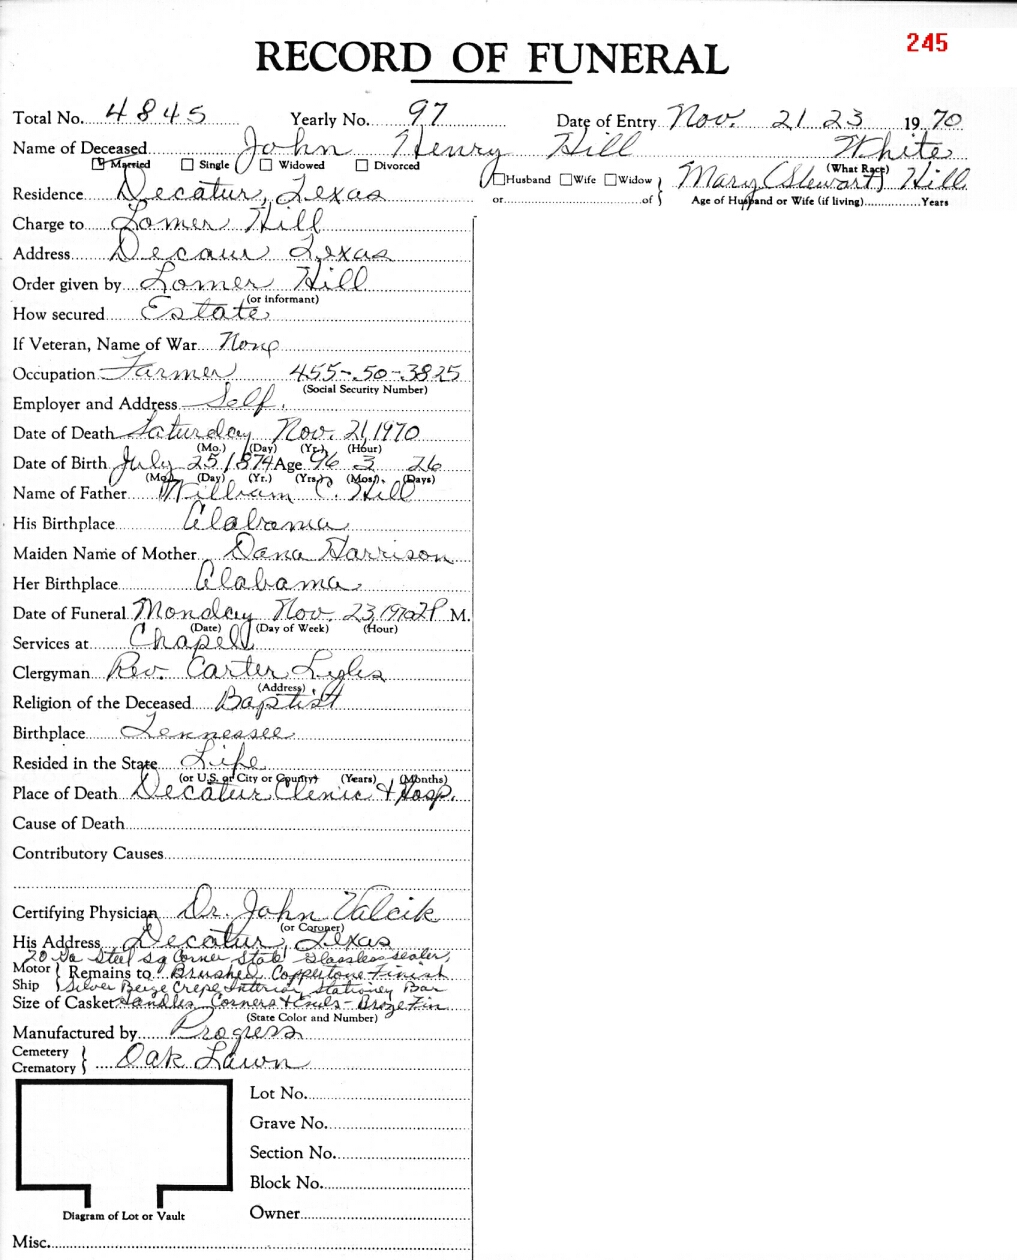 245
RECORD OF FUNERAL
Total No. 4845 Yearly No. 97 Date of Entry Nov. 21 23 1970
Name of Deceased John Henry Hill White
Married Single Widowed Divorced (What Race)
Residence Decatur, Texas Husband Wife Widow Mary (Stewart) Hill
or of Age of Husband or Wife (if living) Years
Charge to Lomer Hill
Address Decaur Texas
Order given by Lomer Hill
(or informant)
How secured Estate
If Veteran, Name of War None
Occupation Farmer 455-50-3825
(Social Security Number)
Employer and Address Self.
Date of Death Saturday Nov. 21, 1970
(Mo.) (Day) (Yr.) (Hour)
Date of Birth July 25 1874 Age 96 3 26
(Mo.) (Day) (Yr.) (Yrs.) (Mos.) (Days)
Name of Father William C. Hill
His Birthplace Alabama
Maiden Name of Mother Dana Harrison
Her Birthplace Alabama
Date of Funeral Monday Nov. 23, 1970 2 P M.
(Date) (Day of Week) (Hour)
Services at Chapel
Clergyman Rev. Carter
(Address)
Religion of the Deceased Baptist
Birthplace Tennessee
Resided in the State Life
(or U.S. or City or County) (Years) (Months)
Place of Death Decatur Clinic & Hosp.
Cause of Death
Contributory Causes
Certifying Physician Dr. John Valcik
(or Coroner)
His Address Decatur, Texas
20 Ga Steel Sq Corner State Glassless sealer,
Motor Ship Remains to Brushed Coppertone Finish
Silver Beige Crepe Interior, Stationey Bar
Size of Casket Handles Corners & Ends - Broze Fin
(State Color and Number)
Manufactured by Progress
Cemetery Crematory Oak Lawn
Lot No.
Grave No.
Section No.
Block No.
Owner
Diagram of Lot or Vault
Misc.